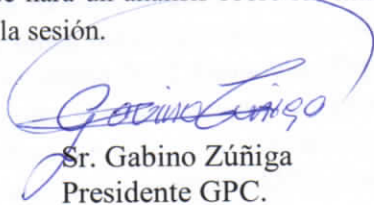 la sesión.
Gabino Zuñigo
Sr. Gabino Zúñiga
Presidente GPC.